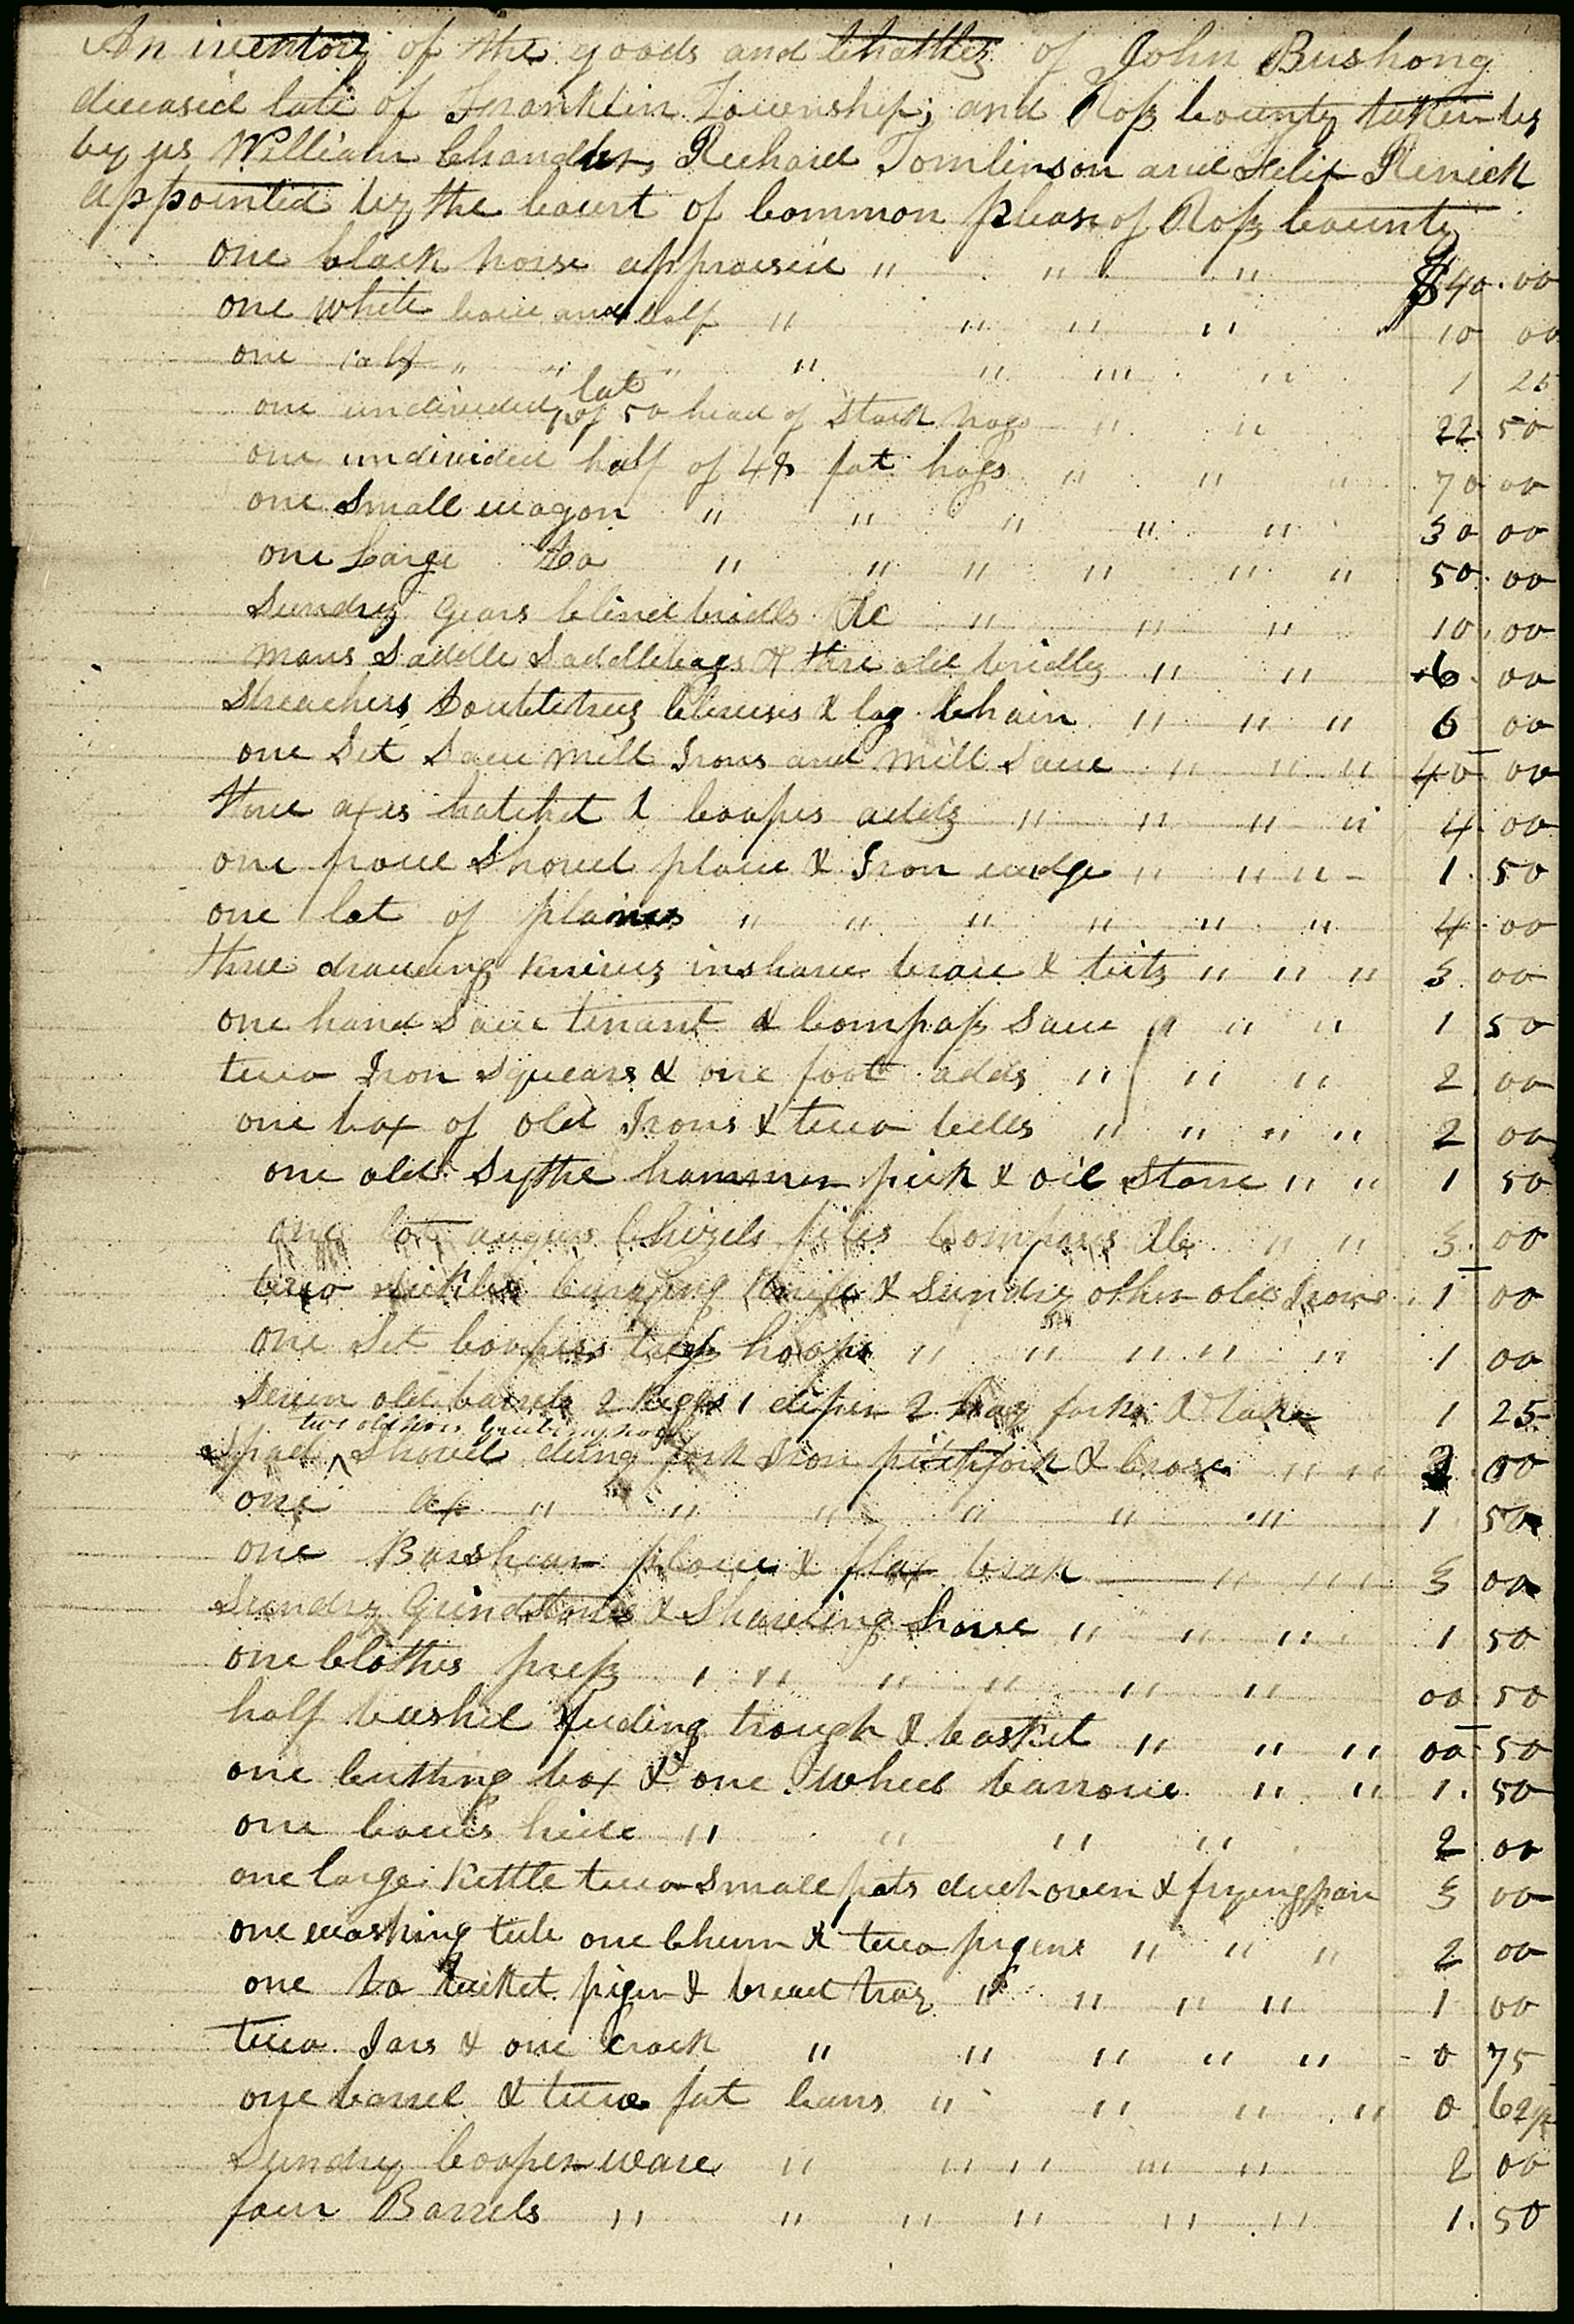 An inventory of the goods and Chattles of John Bushong
deceased late of Franklin Township, and Ross County taken by
by us William Chandler, Richard Tomlinson and Felix Renick
appointed by the Court of Common pleas of Ross County
one black horse appraised " " " $40.00
one white Cow and Calf " " " " 10 00
one Calf " " " " " " " 1 25
one undivided lot of 50 head of Stock hogs " " 22.50
one undivided half of 48 fat hogs " " " 70 00
one Small wagon " " " " " 30 00
one Large Do " " " " " " 50.00
Sundry Gears blind bridls &c " " " 10.00
Mans Saddle Saddlebags & thre old bridles " " 6.00
Streachers, Doubletrees Clevises & log Chain " " " 6 00
one Set Saw Mill Irons and Mill Saw " " " 40 00
three axes hatchet & Coopers addz " " " " 4.00
one frow Shovel plow & Iron wedge " " " 1.50
one lot of plaines " " " " " " 4.00
three drawing knives inshave brace & bits " " " 3.00
one hand Saw tenant & Compass Saw " " " 1 50
two Iron Squears & one foot adds " " " 2 00
one box of old Irons & two bells " " " " 2 00
one old Sythe hammer pick & oil Stone " " 1 50
one lot augurs Chizels files Compases &c " " 3.00
two Currying Knife & Sundry other old Irons. 1 00
one Set Coopers hoops " " " " " 1 00
Seven old barrels 2 Kegs 1 2 hay forks & 1 25
two old hoes Grubing hoe
Spad ^ Shovel dung fork Iron pitchfork & " " 2.00
one ax " " " " " " 1.50
one Barshear plow & flax brak " " 3 00
Sundry Grindstones & Shaveing horse " " " 1 50
one Clothes press " " " " " " 00.50
half bushel feeding trough & basket " " " 00.50
one Cutting box & one wheel barrow " " 1.50
one Cow's hide " " " " 2 00
one large Kettle two Small pots duch oven & fryingpan 3 00
one washing tub one Churn & two pigens " " " 2 00
one Do bucket pigen & bread tray " " " " 1 00
two Jars & one Crock " " " " " 0 75
one barrel & two fat " " " " 0.62½
Sundry Cooper ware " " " " " 2 00
four Barrels " " " " " " 1.50